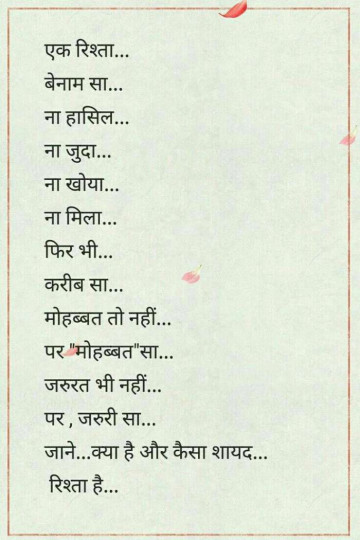 एक रिश्ता...
बेनाम सा...
ना हासिल...
ना जुदा...
ना खोया...
ना मिला...
फिर भी...
करीब सा...
मोहब्बत तो नहीं...
पर "मोहब्बत"सा...
जरुरत भी नहीं...
पर , जरुरी सा...
जाने...क्या है और कैसा शायद...
रिश्ता है...